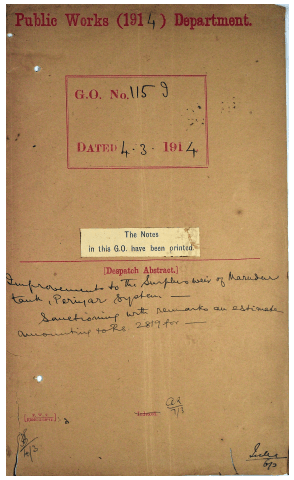 Public Works (1914) Department.
G.O. No. 1159
DATED 4.3.1914
The Notes
in this G.O. have been printed
[Despatch Abstract.]
Improvements to the Surplus weir of
tank, Periyar System —
Sanctioning with remarks an estimate
amounting to Rs 2819 for —
3
7/3